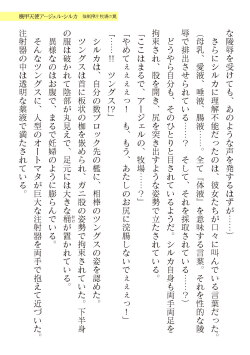 機甲天使アージェル・シルカ
な陵辱を受けても、あのような声を発するはずが……」
さらにシルカに理解不能だったのは、彼女たちが口々に叫んでいる言葉だった。
「母乳、愛液、唾液、腸液……。全て「体液」を意味する言葉。それを性的な陵
辱で排出させられている……？　そして、それを採取されている……？」
どうやら自分も、そのひとりと目されているようだ。シルカ自身も両手両足を
拘束され、股を開き、尻を突き出すような姿勢で立たされている。
「ここはまるで、アージェルの、牧場……？」
「やめてぇぇぇぇっ！　もっ、もうっ、あたしのお尻に浣腸しないでぇぇぇぇ！」
「……！！　ツングス！？」
シルカは、自分の数ブロック先の檻に、相棒のツングスの姿を認めた。
ツングスは首に板状の枷を嵌められ、ガニ股の姿勢で拘束されていた。下半身
の服は破かれて陰部が丸見えで、足元には大きな桶が置かれている。
異様なのはお腹で、まるで妊婦のように膨らんでいる。
そんなツングスに、人型のオートマタが巨大な注射器を両手で抱えて近づいた。
注射器の中は透明な薬液で満たされている。